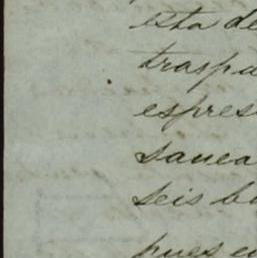 esta de
traspa
espres
sanea
seis b
pues e